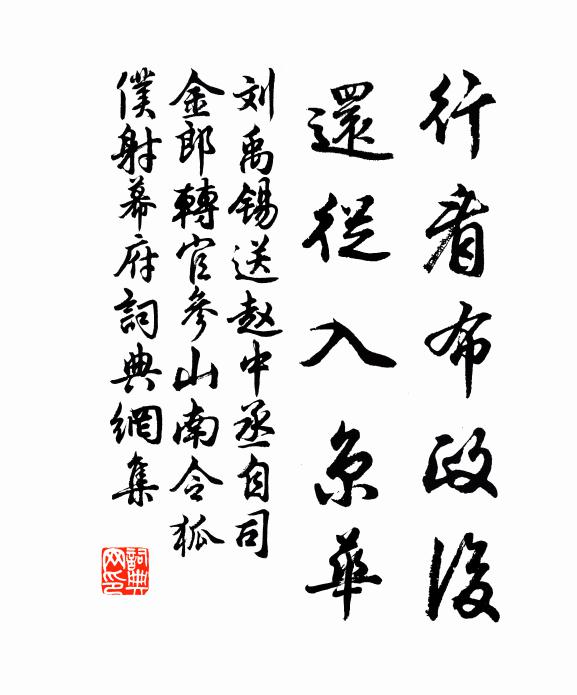 行看布政後
還從入京華
刘禹锡送赵中丞自司
金郎轉官參山南令狐
僕射幕府詞典網集
詞典网印